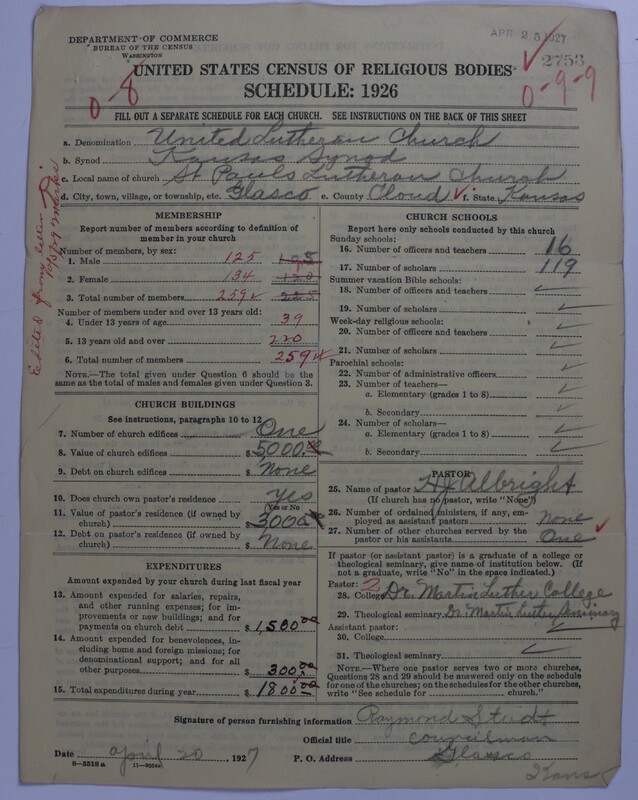 DEPARTMENT OF COMMERCE
BUREAU OF THE CENSUS
WASHINGTON
APR 25 1927
2753
UNITED STATES CENSUS OF RELIGIOUS BODIES
SCHEDULE: 1926
0-8
0-9-9
FILL OUT A SEPARATE SCHEDULE FOR EACH CHURCH. SEE INSTRUCTIONS ON THE BACK OF THIS SHEET
a. Denomination United Lutheran Church
b. Synod Kansas Synod
c. Local name of church St Pauls Lutheran Church
d. City, town, village, or township, etc. Glasco e. County Cloud f. State Kansas
Edited from letter
MEMBERSHIP
Report number of members according to definition of member in your church
Number of members, by sex:
1. Male 125
2. Female 134 120
3. Total number of members 259
Number of members under and over 13 years old:
4. Under 13 years of age 39
5. 13 years old and over 220
6. Total number of members 259
NOTE.—The total given under Question 6 should be the same as the total of males and females given under Question 3.
CHURCH BUILDINGS
See instructions, paragraphs 10 to 12
7. Number of church edifices One
8. Value of church edifices $ 5000.00
9. Debt on church edifices $ None
10. Does church own pastor's residence yes
Yes or No
11. Value of pastor's residence (if owned by church) $ 3000
12. Debt on pastor's residence (if owned by church) $ None
EXPENDITURES
Amount expended by your church during last fiscal year
13. Amount expended for salaries, repairs, and other running expenses; for improvements or new buildings; and for payments on church debt $ 1,500.00
14. Amount expended for benevolences, including home and foreign missions; for denominational support; and for all other purposes $ 300.00
15. Total expenditures during year $ 1800.00
CHURCH SCHOOLS
Report here only schools conducted by this church
Sunday schools:
16. Number of officers and teachers 16
17. Number of scholars 119
Summer vacation Bible schools:
18. Number of officers and teachers
19. Number of scholars
Week-day religious schools:
20. Number of officers and teachers
21. Number of scholars
Parochial schools:
22. Number of administrative officers
23. Number of teachers—
a. Elementary (grades 1 to 8)
b. Secondary
24. Number of scholars—
a. Elementary (grades 1 to 8)
b. Secondary
PASTOR
25. Name of pastor Albright
(If church has no pastor, write "None")
26. Number of ordained ministers, if any, employed as assistant pastors none
27. Number of other churches served by the pastor or his assistants One
If pastor (or assistant pastor) is a graduate of a college or theological seminary, give name of institution below. (If not a graduate, write "No" in the space indicated.)
Pastor: 2
28. College Dr. Martin Luther College
29. Theological seminary Dr. Martin Luther Seminary
Assistant pastor:
30. College
31. Theological seminary
NOTE.—Where one pastor serves two or more churches, Questions 28 and 29 should be answered only on the schedule for one of the churches; on the schedules for the other churches, write "See schedule for church."
Signature of person furnishing information Raymond Studt
Official title Councilman
Date april 20, 1927 P. O. Address Glasco
Kans
8-5318 a